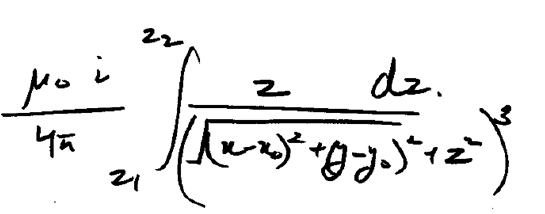 \frac{\mu_0 i}{4\pi} \int_{z_1}^{z_2} \frac{z \quad dz.}{\left(\sqrt{(x-x_0)^2+(y-y_0)^2+z^2}\right)^3}